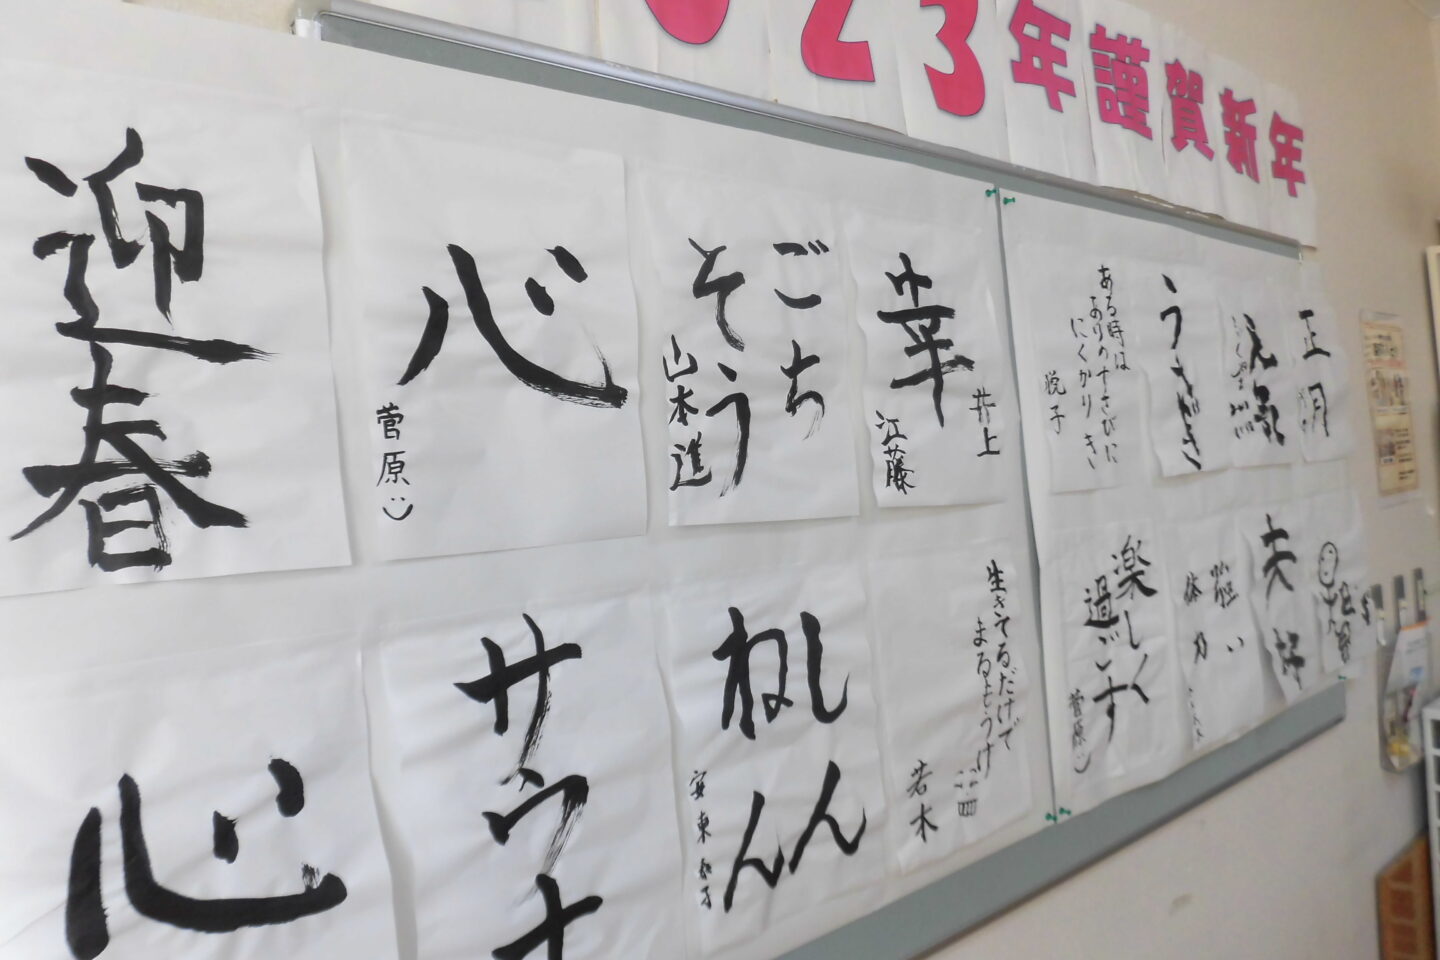 023年謹賀新年
迎春
心
菅原
ごち
そう
山本進
幸
井上
江藤
ある時は
ありのすさびに
にくかりき
悦子
うさぎ
元気
正月
心
サウナ
しん
ねん
生きてるだけで
まるもうけ
若木
楽しく
過ごす
菅原
強い
体力